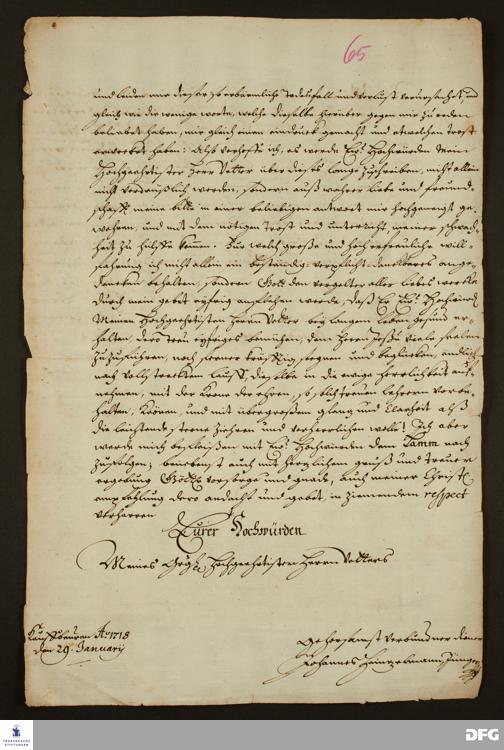 65
und leiden mir dieser so erbärmliche Todesfall und verlust verursachet, und
gleich wie die wenige worte, welche dieselbe hierüber gegen mir zu reden
beliebet haben, mir gleich einen eindruck gemacht und etwelchen trost
erwecket haben: Alß verhoffe ich, es werde Eu: Hochwürden Mein
Hochgeehrtister Herr Vetter über dieses lange zuschreiben, nicht allein
nicht verdrüßlich werden, sondern auß wahrer liebe und freund-
schafft meine bitte in einer beliebigen antwort mir hochgeneigt ge-
wehren, und mit dem nötigen trost und unterricht, meiner schwach-
heit zu hülffe kommen. Vor welch große und hoch erfreuliche will-
fahrung ich nicht allein ein beständig: verpflicht: danckbares ange-
dencken behalten, sondern Gott den vergelter aller liebes wercke
durch mein gebet eyfrig anflehen werde, daß Er Eu: Hochwürd:
Meinen Hochgeehrtisten Herrn Vetter bey langem leben gesund er-
halten, dero treu eyfriges bemühen, dem Herrn Jesu viele seelen
zuzuführen, noch ferner kräfftig segnen und beglücken, endlich
nach vollstrecktem lauff, dieselbe in die ewige herrlichkeit auf-
nehmen, mit der krone der ehren, so solch treuen lehrern vorbe-
halten, krönen, und mit übergroßem glantz und klarheit alß
die leuchtende sterne zieren und verherrlichen wolle! Ich aber
werde mich befleißen mit Eu: Hochwürden dem Lamm nach
zufolgen; benebenst auch mit hertzlichem gruß und treuer
ergebung Göttl: vorsorge und gnade, auch meiner Christl:
empfehlung dero andacht und gebet, in ziemendem respect
verharren
Eurer Hochwürden
Meines Hochgeehrtisten Herrn Vetters
Kauffbeuren Ao. 1718
den 29. Januarij
gehorsamst verbundner diener
Johannes Heinzelmann Jünger
FRANCKESCHE
STIFTUNGEN
DFG